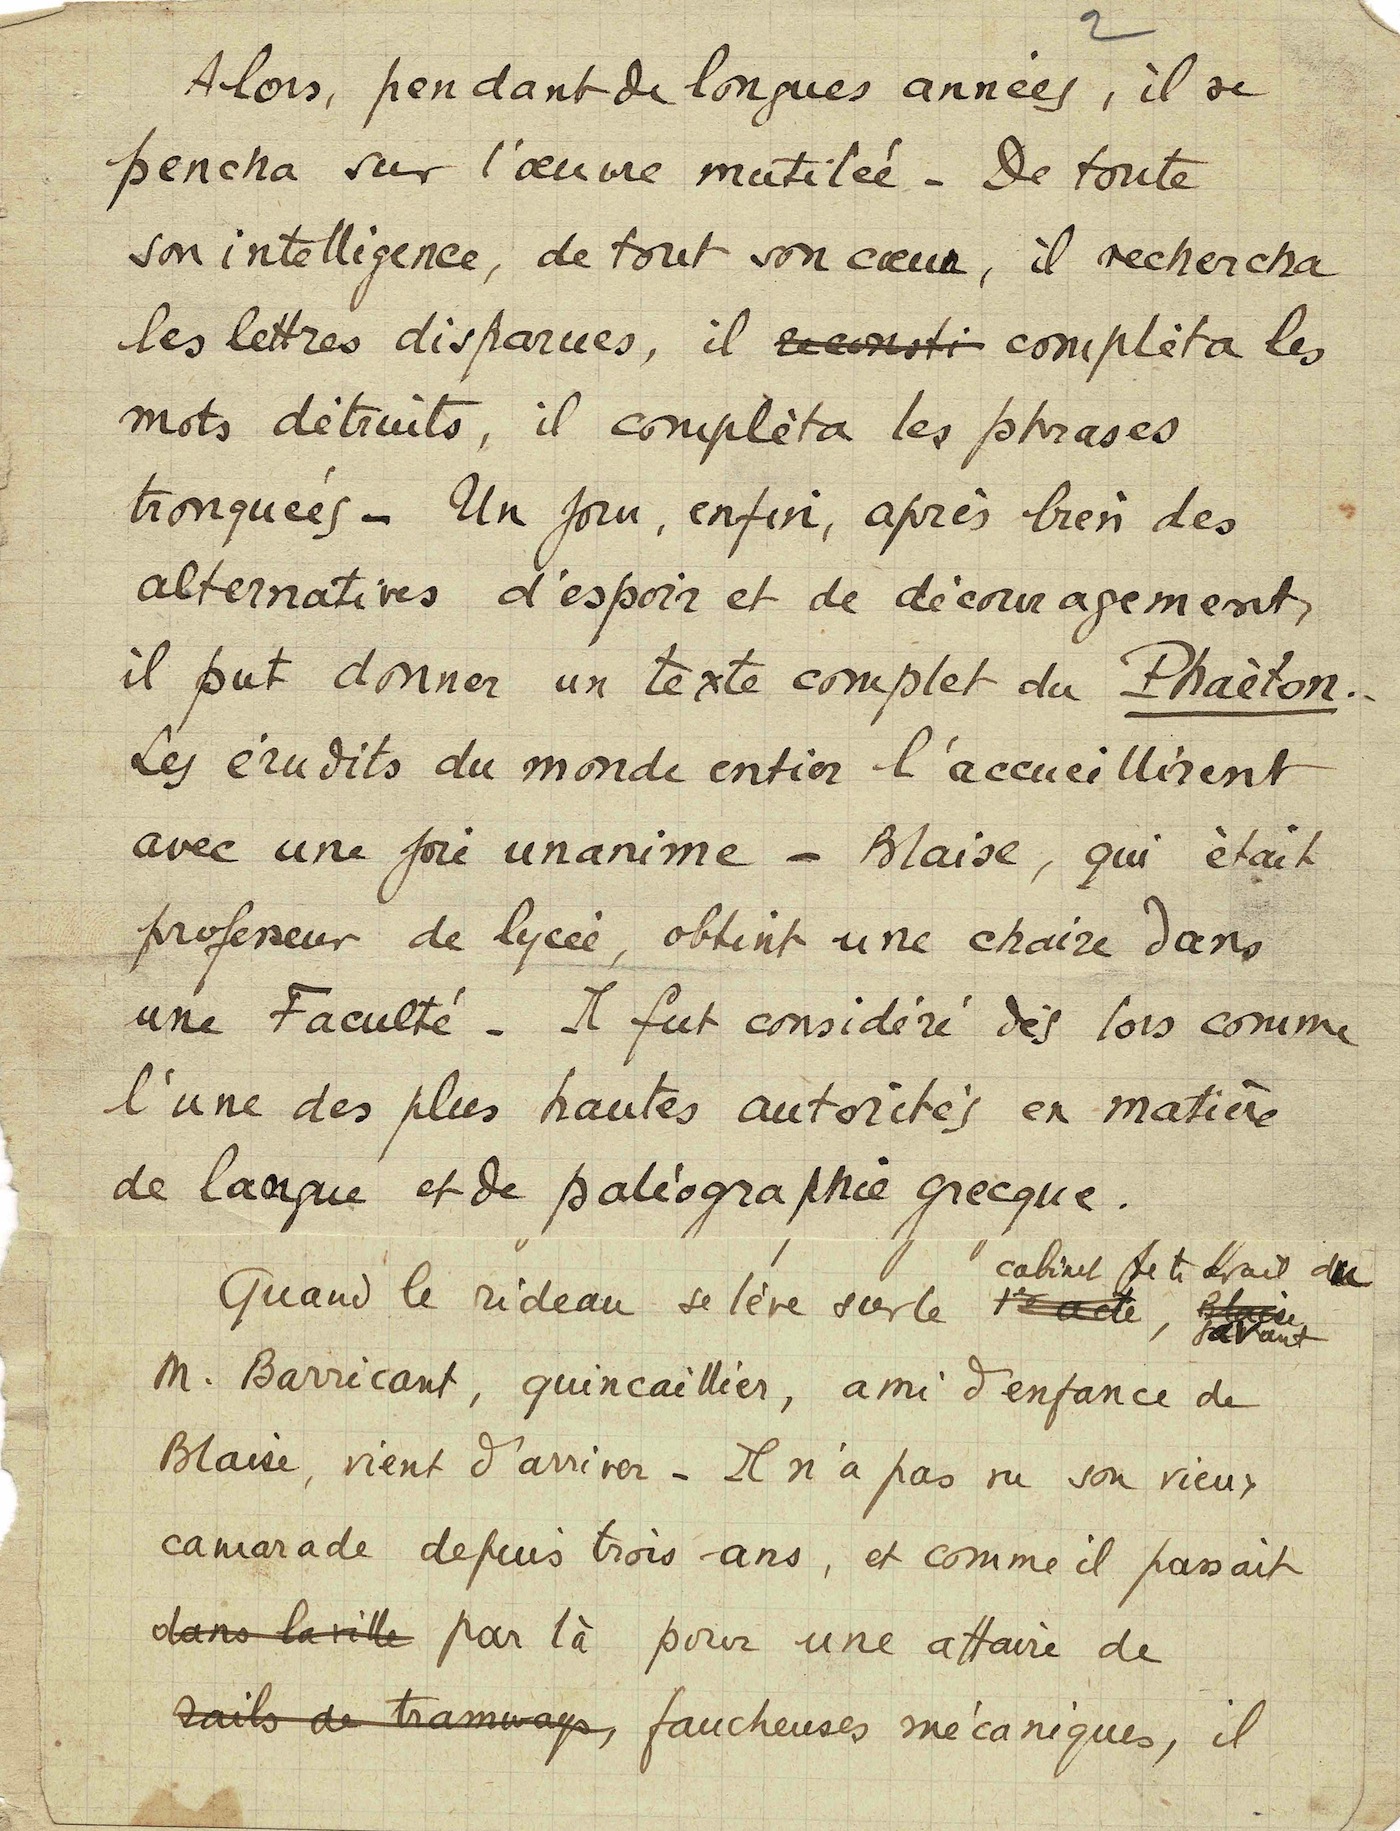 2
Alors, pendant de longues années, il se
pencha sur l'œuvre mutilée - De toute
son intelligence, de tout son cœur, il rechercha
les lettres disparues, il reconsti compléta les
mots détruits, il compléta les phrases
tronquées - Un jour, enfin, après bien des
alternatives d'espoir et de découragement,
il put donner un texte complet du Phaéton.
Les érudits du monde entier l'accueillirent
avec une joie unanime - Blaise, qui était
professeur de lycée, obtint une chaire dans
une Faculté - Il fut considéré dès lors comme
l'une des plus hautes autorités en matière
de langue et de paléographie grecque.
cabinet de travail du
Quand le rideau se lève sur le 1er acte, Blaise
savant
M. Barricant, quincaillier, ami d'enfance de
Blaise, vient d'arriver - Il n'a pas vu son vieux
camarade depuis trois ans, et comme il passait
dans la ville par là pour une affaire de
rails de tramways, faucheuses mécaniques, il